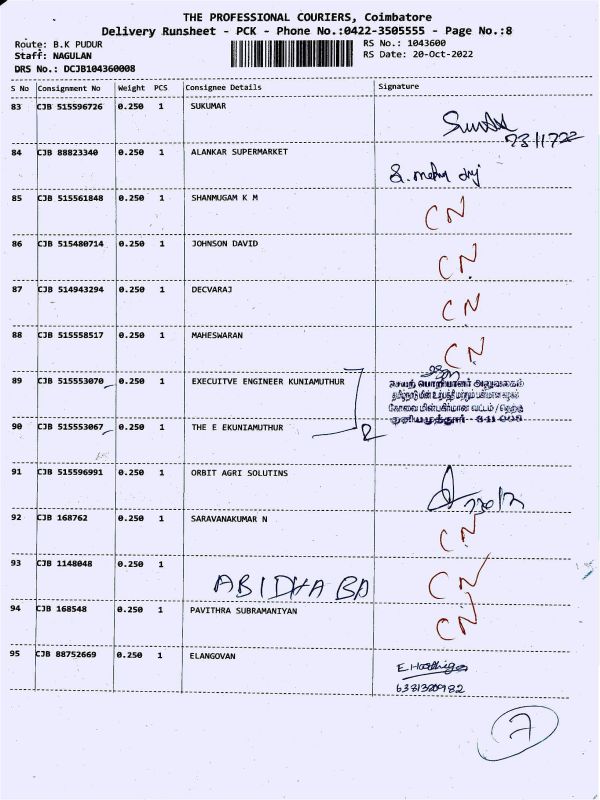 THE PROFESSIONAL COURIERS, Coimbatore
Delivery Runsheet - PCK - Phone No.:0422-3505555 - Page No.:8
Route: B.K PUDUR RS No.: 1043600
Staff: NAGULAN RS Date: 20-Oct-2022
DRS No.: DCJB104360008
S No Consignment No Weight PCS Consignee Details Signature
83 CJB 515596726 0.250 1 SUKUMAR
84 CJB 88823340 0.250 1 ALANKAR SUPERMARKET
85 CJB 515561848 0.250 1 SHANMUGAM K M CN
86 CJB 515480714 0.250 1 JOHNSON DAVID CN
87 CJB 514943294 0.250 1 DECVARAJ CN
88 CJB 515558517 0.250 1 MAHESWARAN CN
89 CJB 515553070 0.250 1 EXECUITVE ENGINEER KUNIAMUTHUR
செயற் பொறியாளர் அலுவலகம்
தமிழ்நாடு மின் உற்பத்தி மற்றும் பகிர்மான கழகம்
கோவை மின்பகிர்மான வட்டம் / தெற்கு
90 CJB 515553067 0.250 1 THE E EKUNIAMUTHUR
குனியமுத்தூர் - 641 008
91 CJB 515596991 0.250 1 ORBIT AGRI SOLUTINS
92 CJB 168762 0.250 1 SARAVANAKUMAR N CN
93 CJB 1148048 0.250 1 ABIDHA BA CN
94 CJB 168548 0.250 1 PAVITHRA SUBRAMANIYAN CN
95 CJB 88752669 0.250 1 ELANGOVAN
7